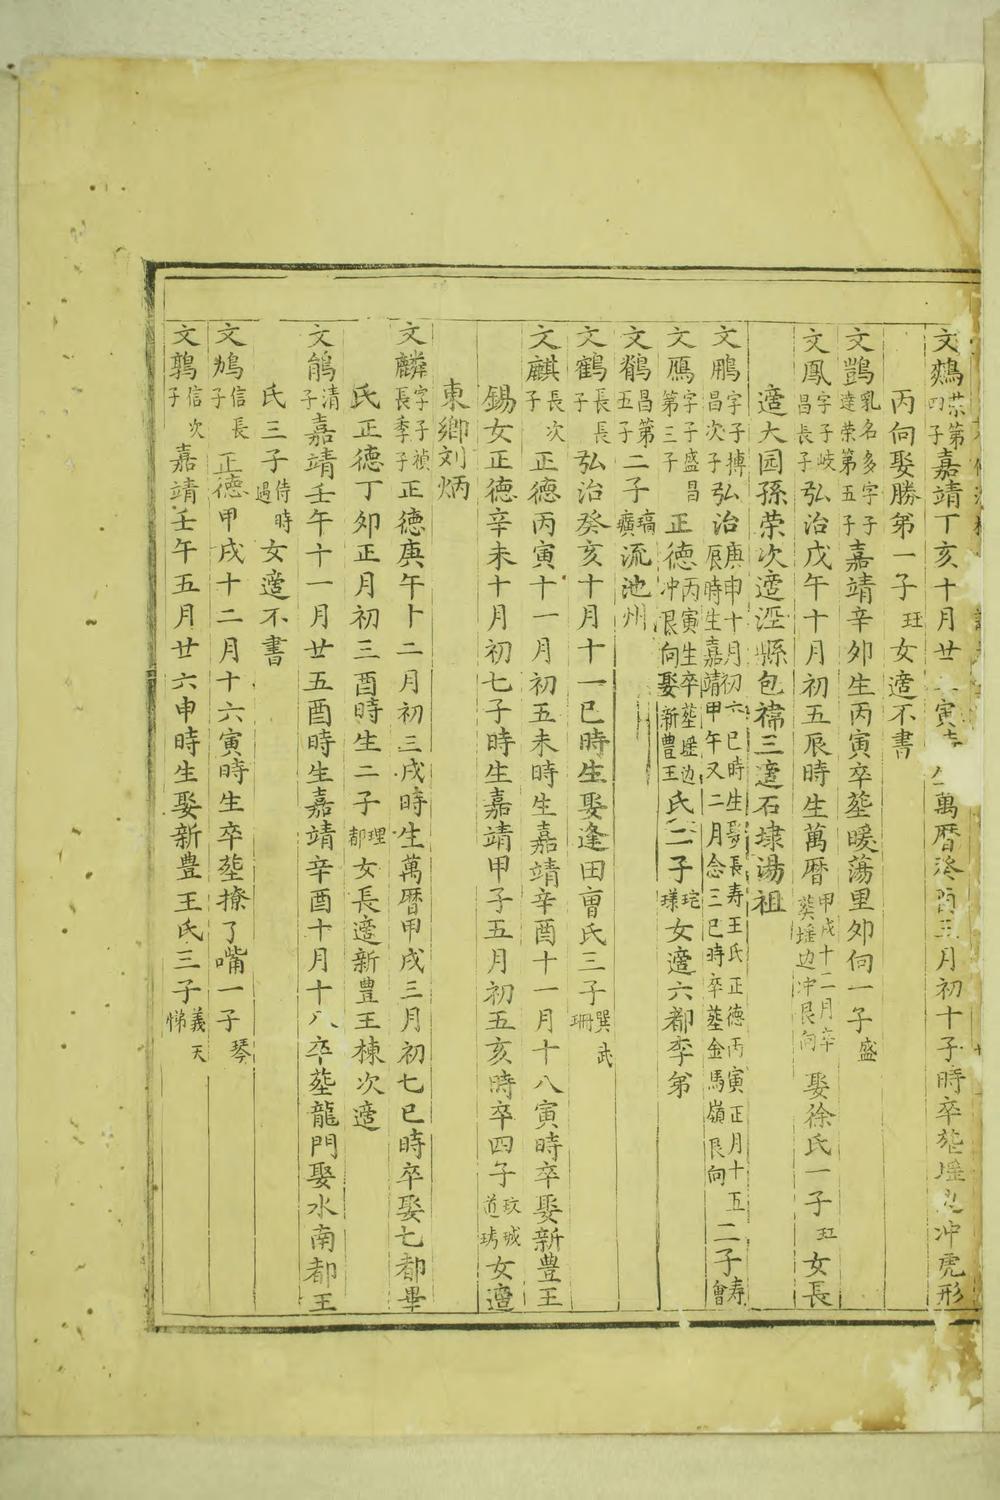 文鵜荣第四子嘉靖丁亥十月廿寅萬曆癸酉三月初十子時卒塟瑶边冲虎形
丙向娶勝弟一子玨女適不書
文鹍乳名多字子達荣第五子嘉靖辛夘生丙寅卒塟暖蕩里夘向一子盛
文鳳字子岐昌長子弘治戊午十月初五辰時生萬曆甲戍十二月卒葵瑶边冲艮向娶徐氏一子玨女長
適大园孫荣次適涇縣包襦三適石埭湯祖
文鵰字子摶昌次子弘治庚申十月初六巳時生娶長寿王氏正德丙寅正月十五辰時生嘉靖甲午又二月念三巳時卒塟金馬嶺艮向二子寿會
文鴈字子盛昌第三子正德丙寅生卒塟瑶边冲艮向娶新豊王氏二子琓璍女適六都李弟
文鶺昌第五子二子瑀璌流池州
文鶴長長子弘治癸亥十月十一巳時生娶逢田曺氏三子巽武珊
文麒長次子正德丙寅十一月初五未時生嘉靖辛酉十一月十八寅時卒娶新豊王
錫女正德辛未十月初七子時生嘉靖甲子五月初五亥時卒四子玟珹道琇女適
東鄉刘炳
文麟字子禎長季子正德庚午十二月初三戍時生萬曆甲戍三月初七巳時卒娶七都畢
氏正德丁夘正月初三酉時生二子理都女長適新豊王棟次適
文鶬清子嘉靖壬午十一月廿五酉時生嘉靖辛酉十月十八卒塟龍門娶水南都王
氏三子侍時過女適不書
文鳩信長子正德甲戍十二月十六寅時生卒塟撩了嘴一子琴
文鶉信次子嘉靖壬午五月廿六申時生娶新豊王氏三子義天悌